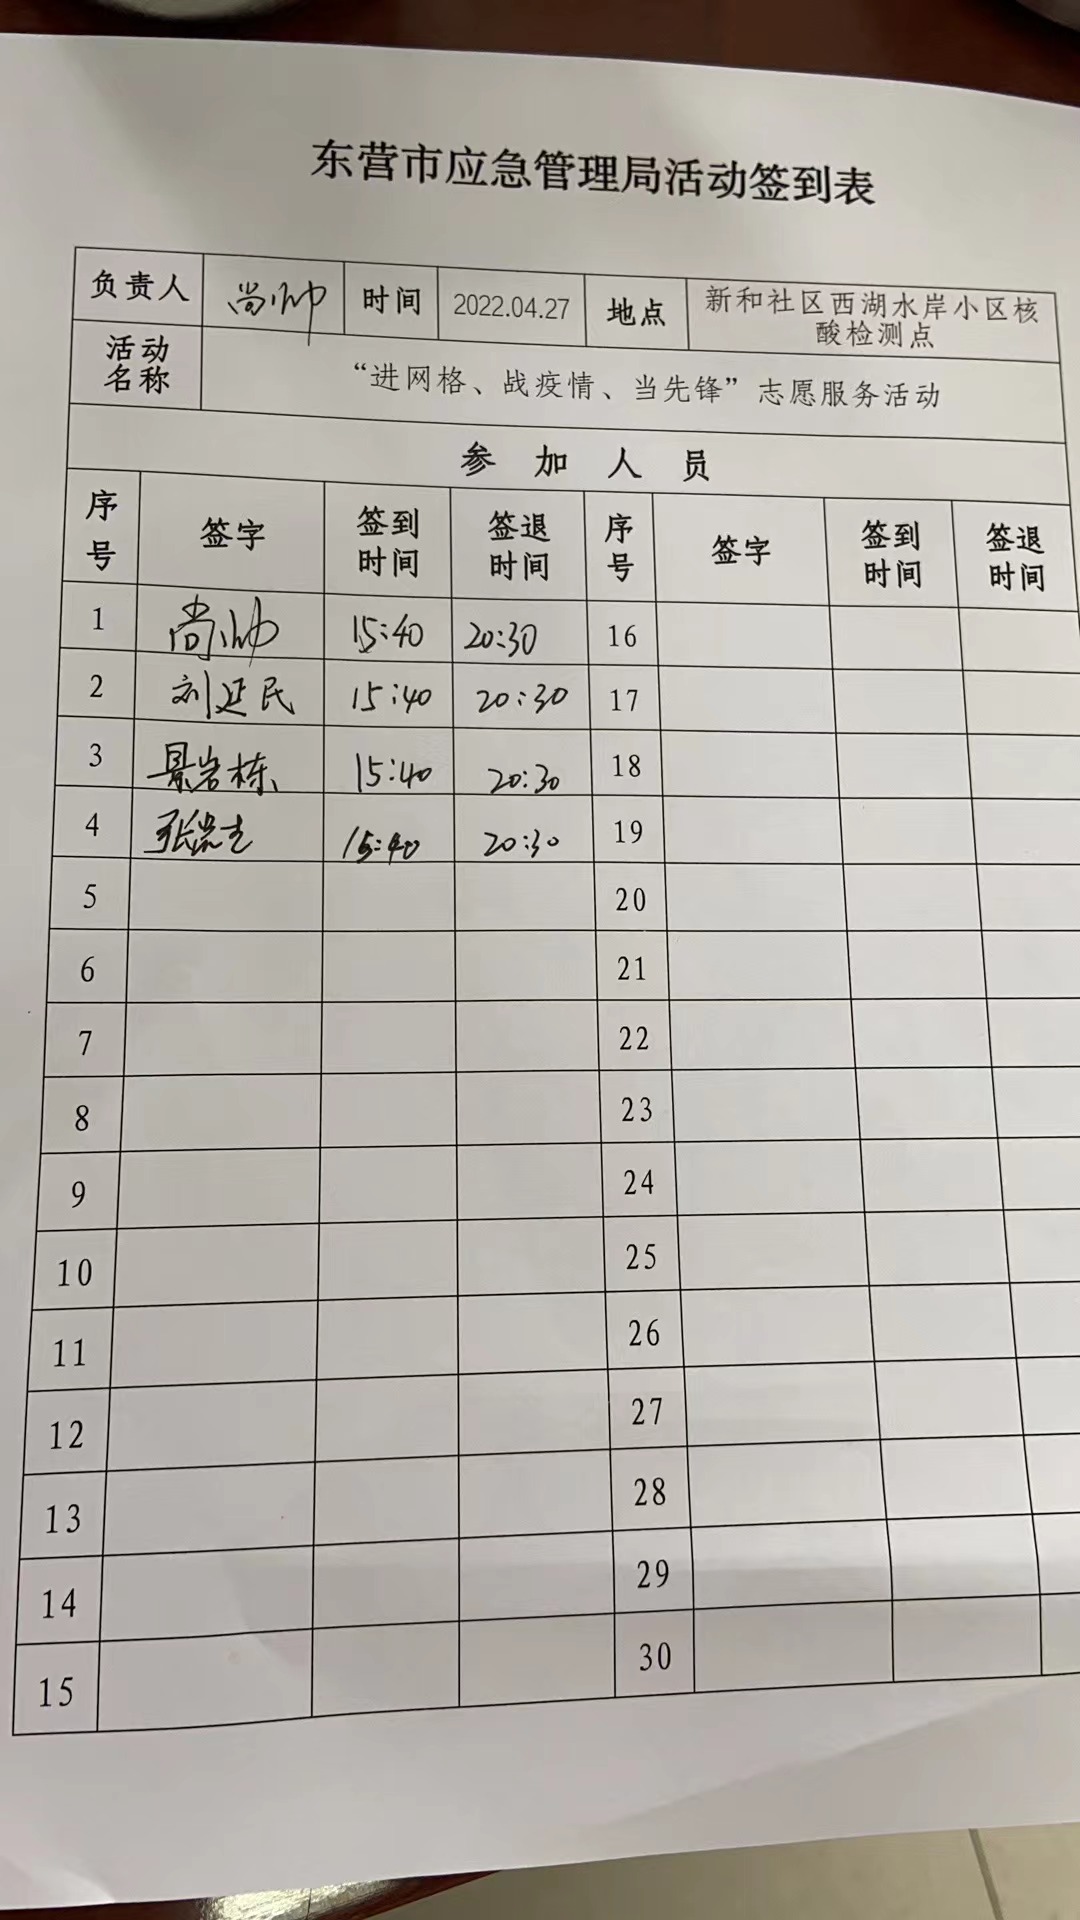 东营市应急管理局活动签到表
负责人 尚帅 时间 2022.04.27 地点 新和社区西湖水岸小区核
酸检测点
活动
名称 “进网格、战疫情、当先锋”志愿服务活动
参加人员
序号 签字 签到时间 签退时间 序号 签字 签到时间 签退时间
1 尚帅 15:40 20:30 16
2 刘延民 15:40 20:30 17
3 景岩栋 15:40 20:30 18
4 张 15:40 20:30 19
5 20
6 21
7 22
8 23
9 24
10 25
11 26
12 27
13 28
14 29
15 30